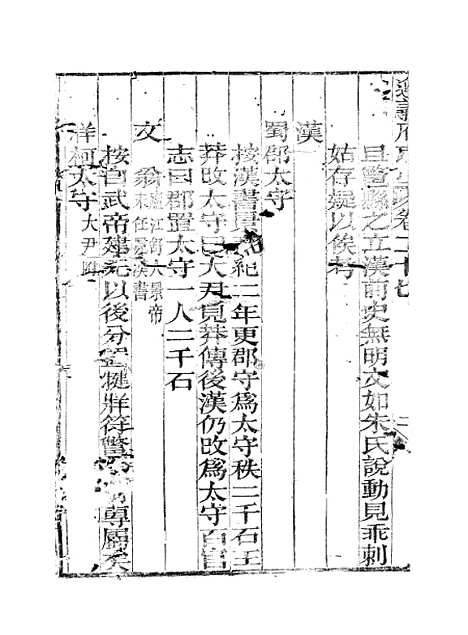 遵義府志 卷二十七
且鳖縣之立漢前史無明文如朱氏說動見乖刺
姑存疑以俟考
漢
蜀郡太守
按漢書景帝紀二年更郡守爲太守秩二千石王
莽改太守曰大尹見莽傳後漢仍改爲太守百官
志曰郡置太守一人二千石
文 翁 廬江舒人景帝末任漢書
按自武帝建元以後分置犍牂符鄨 專屬矣
牂柯太守 大尹附